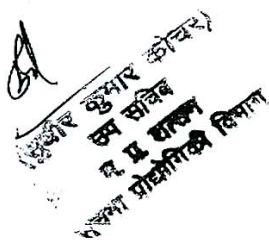 (सुधीर कुमार कोचर)
उप सचिव
म. प्र. शासन
सूचना प्रौद्योगिकी विभाग